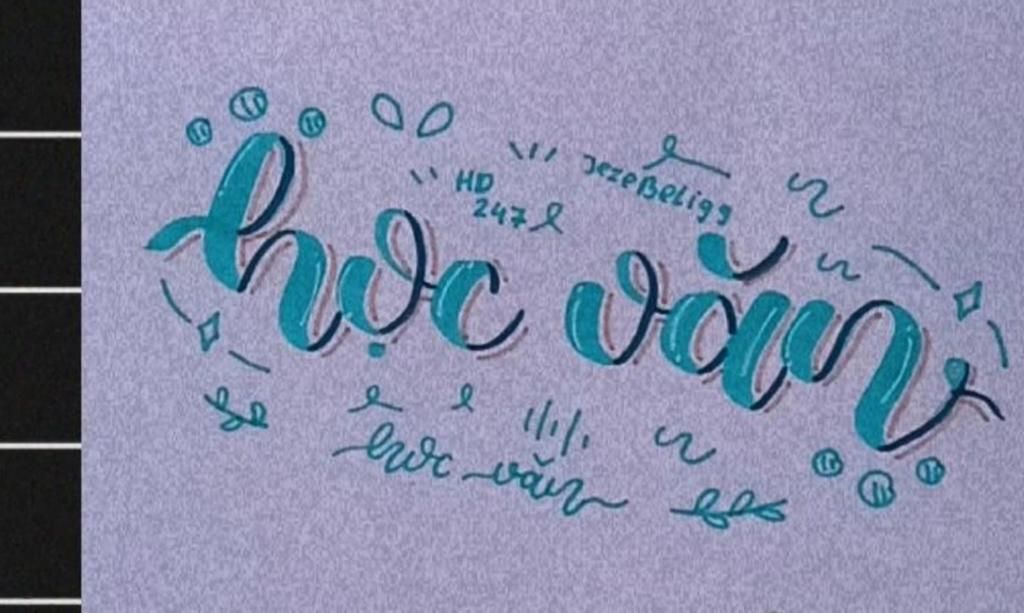 JezeBeligg
HD
247
học văn
học văn